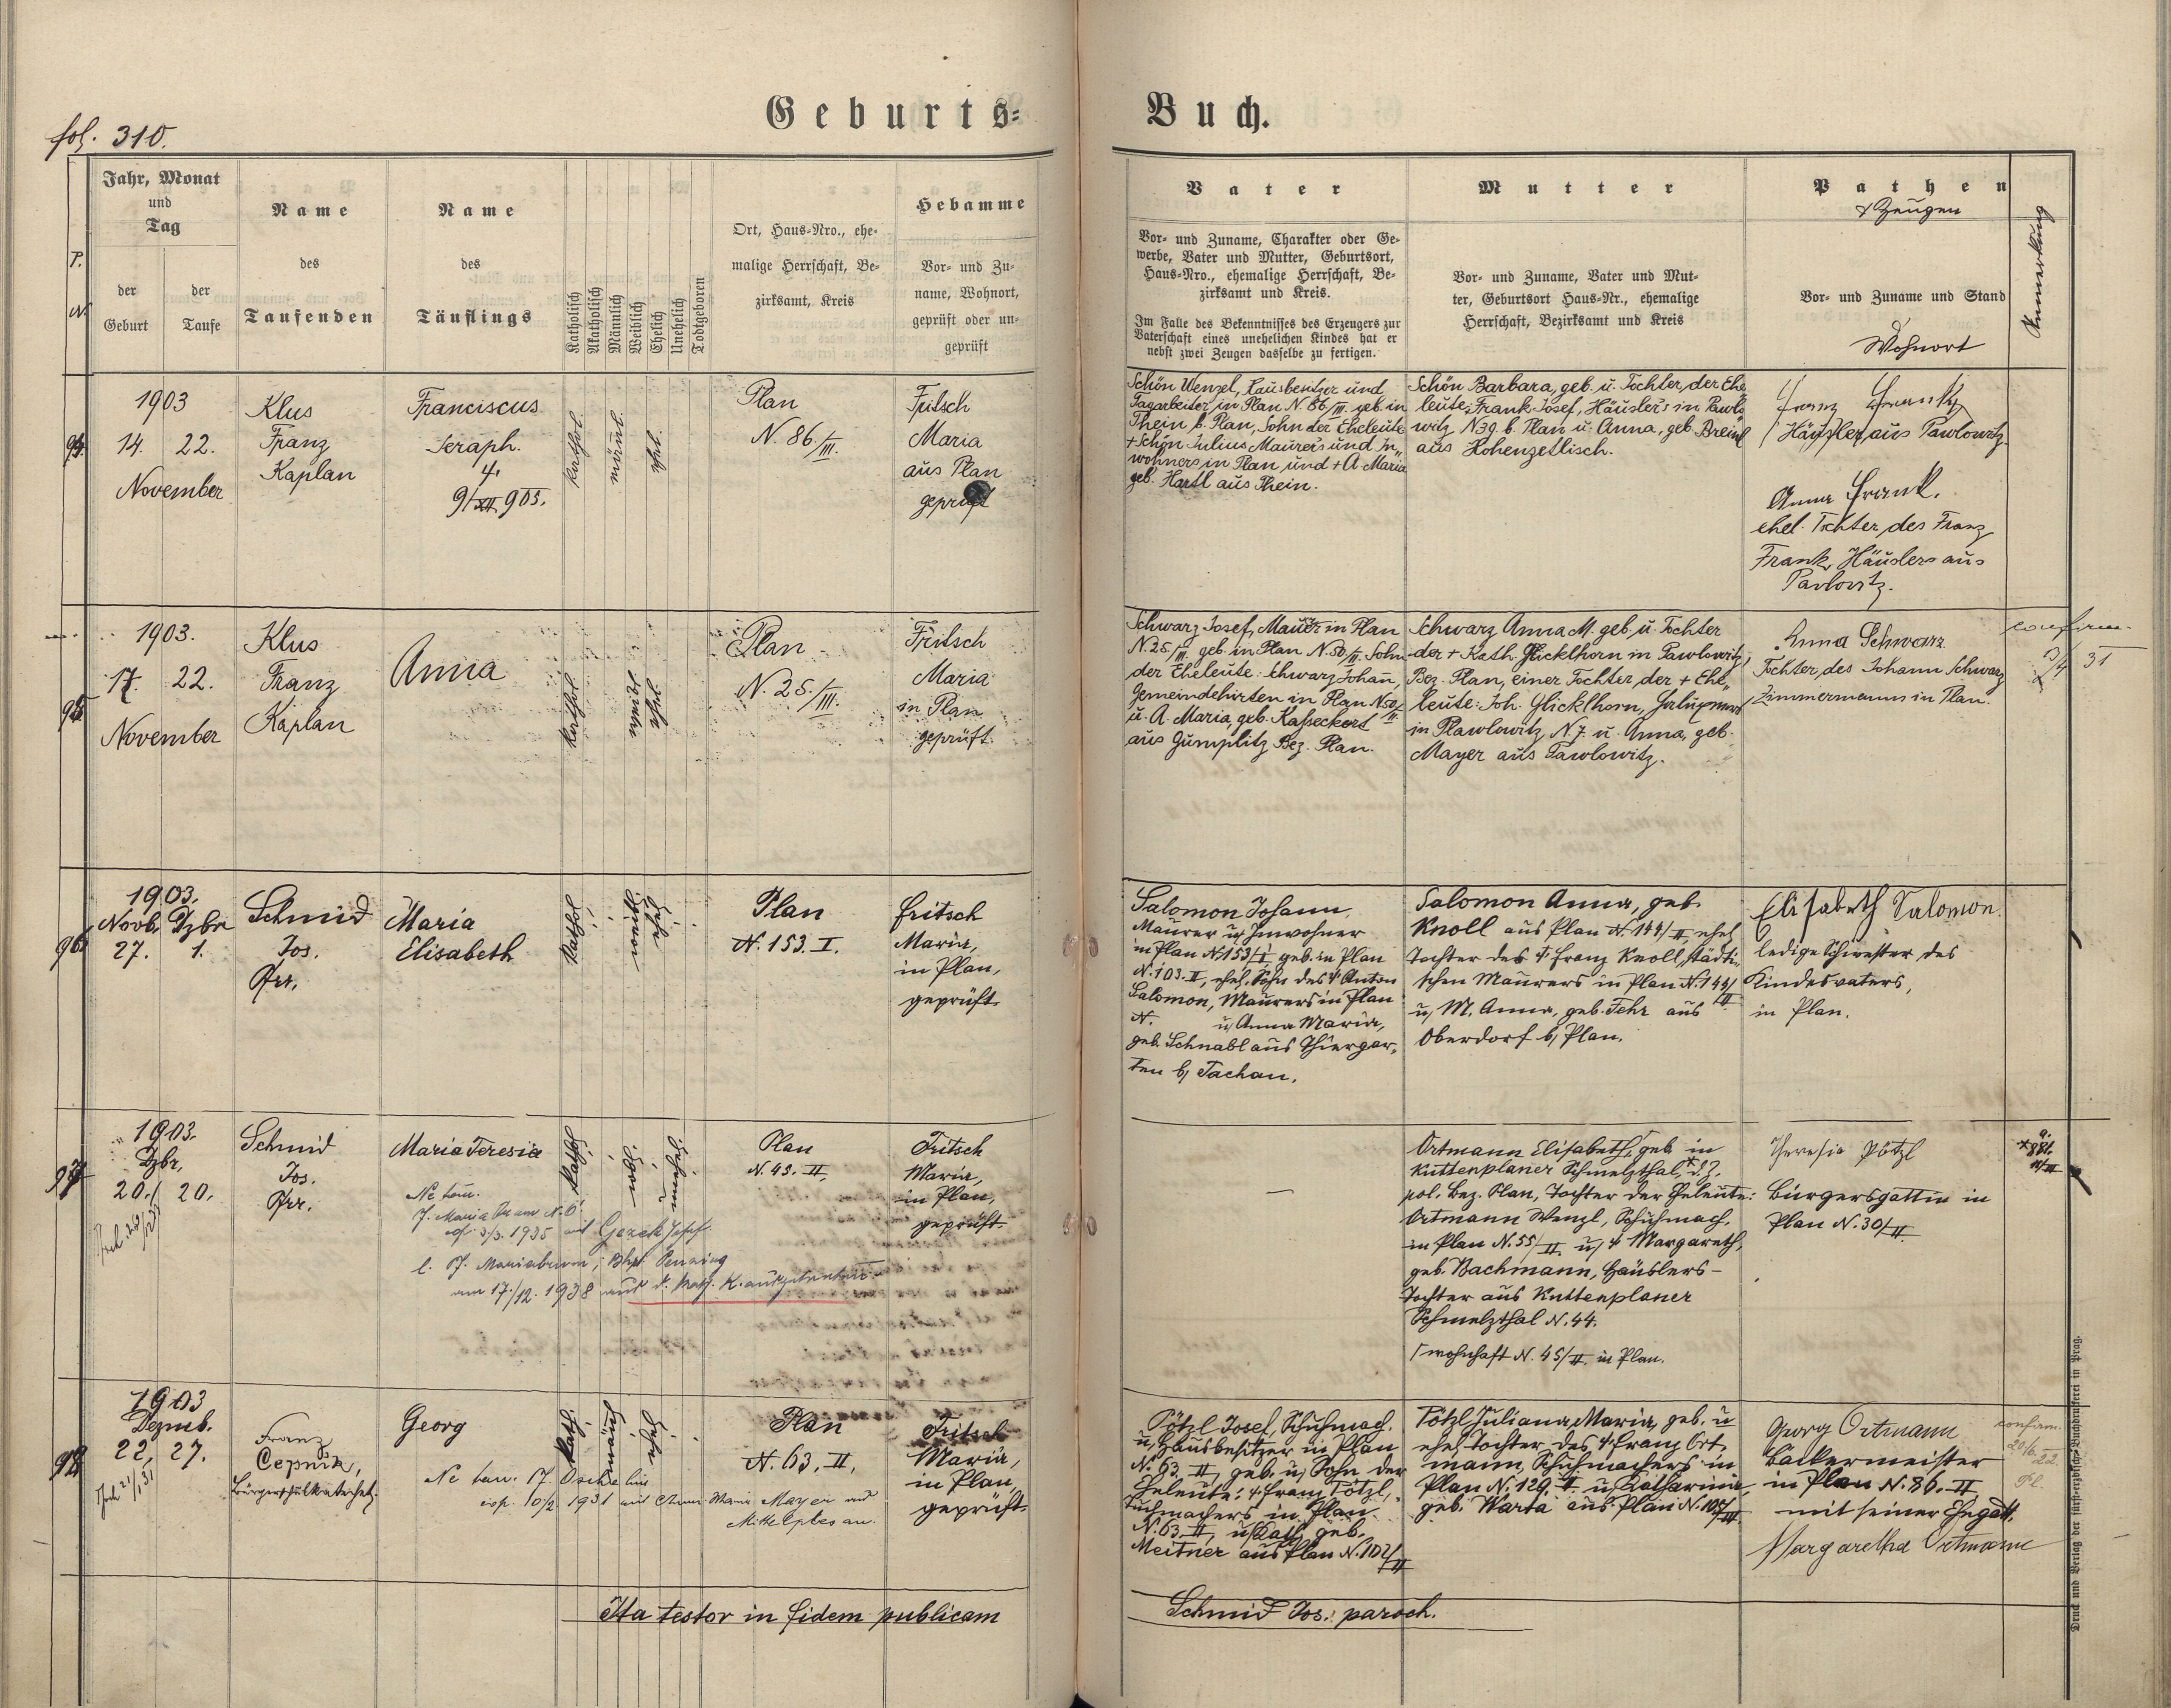 fol. 310.
Geburts=
Buch.
P. N
Jahr, Monat
und
Tag
der
Geburt
der
Taufe
Name
des
Taufenden
Name
des
Täuflings
Katholisch
Akatholisch
Männlich
Weiblich
Ehelich
Unehelich
Todtgeboren
Ort, Haus=Nro., ehe=
malige Herrschaft, Be=
zirksamt, Kreis
Hebamme
Vor= und Zu=
name, Wohnort,
geprüft oder un=
geprüft
Vater
Vor= und Zuname, Charakter oder Ge=
werbe, Vater und Mutter, Geburtsort,
Haus=Nro., ehemalige Herrschaft, Be=
zirksamt und Kreis.
Im Falle des Bekenntnisses des Erzeugers zur
Vaterschaft eines unehelichen Kindes hat er
nebst zwei Zeugen dasselbe zu fertigen.
Mutter
Vor= und Zuname, Vater und Mut=
ter, Geburtsort Haus=Nr., ehemalige
Herrschaft, Bezirksamt und Kreis
Pathen
& Zeugen
Vor= und Zuname und Stand
Wohnort
Anmerkung
94.
1903
14. 22.
November
Klus
Franz
Kaplan
Franciscus
Seraph.
9/XII 903.
kathol.
männl.
ehel.
Plan
N. 86./III.
Fritsch
Maria
aus Plan
geprüft
Schön Wenzel, Hausbesitzer und
Tagarbeiter in Plan N. 86/III. geb. in
Thein b. Plan, Sohn der Eheleute
+ Schön Julius Maurers und In„
wohners in Plan und + A. Maria
geb. Hartl aus Thein.
Schön Barbara, geb. u. Tochter, der Ehe
leute, Frank Josef, Häusler's in Pawlo
witz N 39 b. Plan u. Anna, geb. Breinl
aus Hohenzetlisch.
Franz Frank
Häusler aus Pawlowitz.
Anna Frank.
ehel. Tochter, des Franz
Frank, Häuslers aus
Pavlovitz.
95
1903.
17. 22.
November
Klus
Franz
Kaplan
Anna
kathol
weibl
ehel
Plan
N. 25./III.
Fritsch
Maria
in Plan
geprüft
Schwarz Josef, Maurer in Plan
N. 25/III. geb. in Plan N. 50/III. Sohn
der Eheleute: Schwarz Johann,
Gemeindehirten in Plan N 50/III
u. A. Maria, geb. Kasseckert
aus Gumplitz Bez. Plan.
Schwarz Anna M. geb. u. Tochter
der + Kath. Glicklhorn in Pawlowitz,
Bez. Plan, einer Tochter, der + Ehe„
leute: Joh. Glicklhorn,
in Plawlowitz N. 7. u. Anna, geb.
Mayer aus Pawlowitz.
Anna Schwarz
Tochter, des Johann Schwarz
Zimmermanns in Plan.
confirm.
31
96
1903.
Novb. Dzbr
27. 1.
Schmid
Jos.
Pfr.
Maria
Elisabeth
kathol
Plan
N. 153. I.
Fritsch
Maria,
in Plan,
geprüft.
Salomon Johann,
Maurer u. Inwohner
in Plan N 153/I, geb. in Plan
N. 103. II, ehel. Sohn des + Anton
Salomon, Maurers in Plan
N. u. Anna Maria,
geb. Schnabl aus Thiergar„
ten b. Tachau.
Salomon Anna, geb.
Knoll aus Plan N. 144/II, ehel.
Tochter des + Franz Knoll, städti„
schen Maurers in Plan N. 144/II
u. M. Anna, geb. Fehr aus
Oberdorf b. Plan.
Elisabeth Salomon.
ledige Schwester des
Kindesvaters,
in Plan.
97
1903.
Dzbr,
20. / 20.
Schmid
Jos.
Pfr.
Maria Teresia
Ne tem.
cop. 3/3. 1935 mit Gerek Josef
am 17./12. 1938 aus d. kath. K. ausgetreten.
Kathol
Plan
N. 43. II,
Fritsch
Maria,
in Plan,
geprüft.
—
Ortmann Elisabeth, geb. in
Kuttenplaner Schmelzthal, d. Z.
pol. Bez. Plan, Tochter der Eheleute:
Ortmann Wenzl, Schuhmach.
in Plan N. 55/II. u. + Margareth,
geb. Bachmann, Häuslers-
Tochter aus Kuttenplaner
Schmelzthal N. 44.
/ wohnhaft N. 45/II. in Plan.
Theresia Pötzl
Bürgersgattin in
Plan N. 30/II.
98
1903
Dezmb.
22, 27.
Franz
Cepnik,
Bürgerschulkatechet.
Georg
Ne tem.
cop. 10/2 1931 mit Anna Maria Mayer aus
Kath.
männl
Plan
N. 63. II,
Fritsch
Maria,
in Plan,
geprüft.
Pötzl Josef, Schuhmach.
u. Hausbesitzer in Plan
N. 63. II, geb. u. Sohn der
Eheleute: + Franz Pötzl,
Tuchmachers in Plan
N. 63. II, u. Kath. geb.
Meitner aus Plan N. 102/II
Pötzl Juliana Maria, geb. u
ehel. Tochter des + Franz Ort„
mann, Schuhmachers in
Plan N. 129. II. u. Katharina
geb. Warta aus Plan N. 107/III.
Georg Ortmann
Bäckermeister
in Plan N. 86. II
mit seiner Ehegatt.
Margaretha Ortmann
confirm.
20/6. 22.
Pl.
Ita testor in fidem publicam
Schmid Jos. paroch.
Druck und Verlag der fürst=erzbischöfl. Buchdruckerei in Prag.